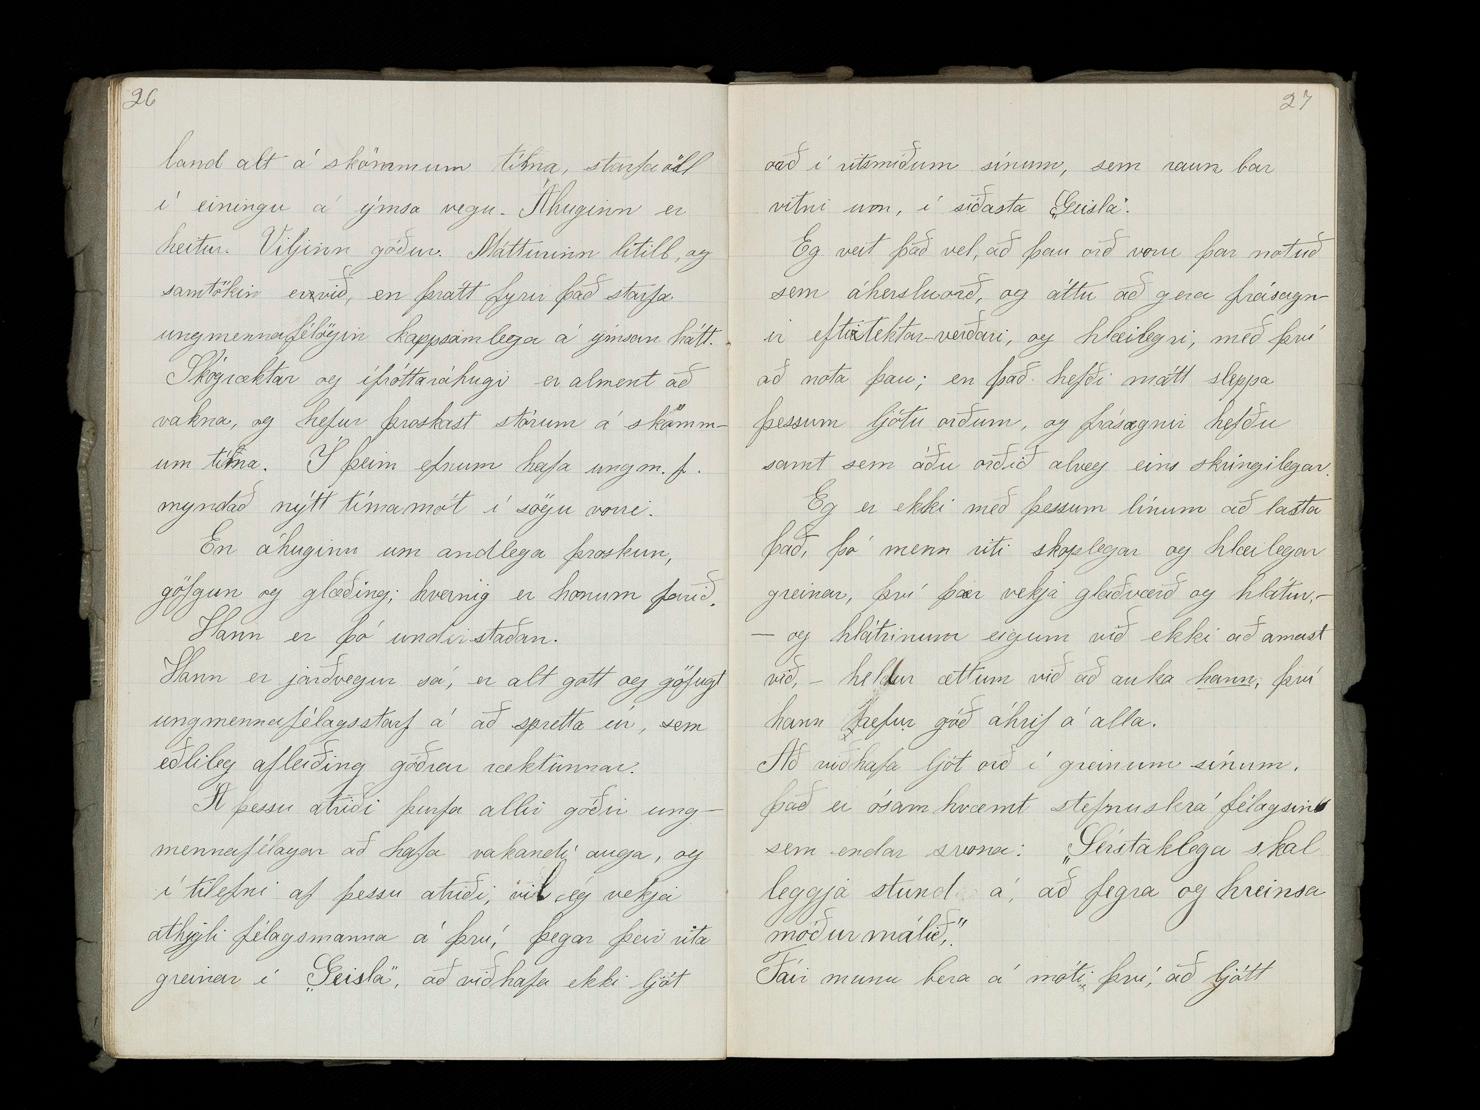 26
land alt á skömmum tíma, starfa öll
í einingu á ýmsa vegu. Áhuginn er
heitur. Viljinn góður. Mátturinn lítill, og
samtökin erfið, en þrátt fyrir það starfa
ungmennafélögin kappsamlega á ýmsan hátt.
Skógræktar og íþróttaráhugi er alment að
vakna, og hefur þroskast stórum á skömm-
um tíma. Í þeim efnum hafa ungm.f.
myndað nýtt tímamót í sögu vorri.
En áhuginn um andlega þroskun,
göfgun og glæðing; hvernig er honum farið.
Hann er þó undirstaðan.
Hann er jarðvegur sá, er alt gott og göfugt
ungmennafélagsstarf á að spretta úr, sem
eðlileg afleiðing góðrar ræktunnar.
Á þessu atriði þurfa allir góðir ung-
mennafélagar að hafa vakandi auga, og
í tilefni af þessu atriði, vil ég vekja
athygli félagsmanna á því, þegar þeir rita
greinar í „Geisla", að viðhafa ekki ljót
27
orð í ritsmíðum sínum, sem raun bar
vitni um, í síðasta „Geisla".
Eg veit það vel, að þau orð voru þar notuð
sem áhersluorð, og áttu að gera frásagn-
ir eftirtektar-verðari, og hlæilegri, með því
að nota þau; en það hefði mátt sleppa
þessum ljótu orðum, og frásagnir hefðu
samt sem áðu orðið alveg eins skringilegar.
Eg er ekki með þessum línum að lasta
það, þó menn riti skoplegar og hlæilegar
greinar, því þær vekja glaðværð og hlátur,-
— og hlátrinum eigum við ekki að amast
við, - heldur ættum við að auka hann, því
hann hefur góð áhrif á alla.
Að viðhafa ljót orð í greinum sínum.
það er ósamkvæmt stefnuskrá félagsins
sem endar svona: „Sérstaklega skal
leggja stund á, að fegra og hreinsa
móðurmálið,"
Fáir munu bera á móti því, að ljótt